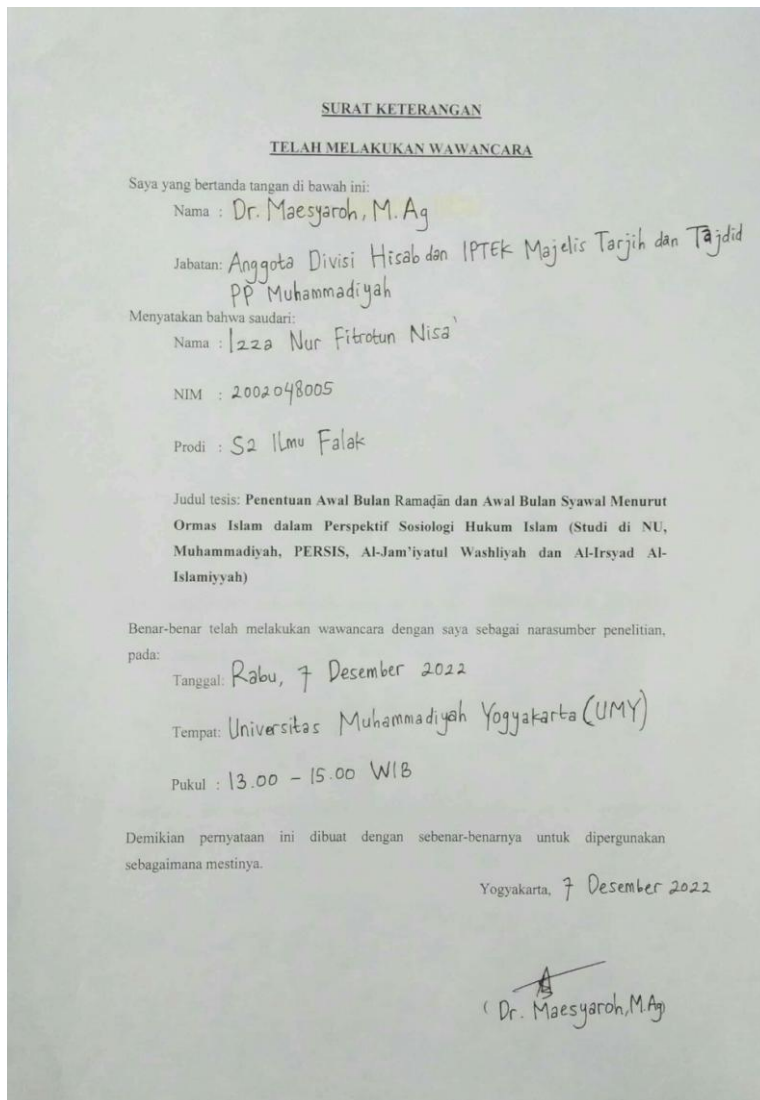 SURAT KETERANGAN
TELAH MELAKUKAN WAWANCARA
Saya yang bertanda tangan di bawah ini:
Nama : Dr. Maesyaroh, M.Ag
Jabatan: Anggota Divisi Hisab dan IPTEK Majelis Tarjih dan Tajdid
PP Muhammadiyah
Menyatakan bahwa saudari:
Nama : Izza Nur Fitrotun Nisa'
NIM : 2002048005
Prodi : S2 Ilmu Falak
Judul tesis: Penentuan Awal Bulan Ramaḍān dan Awal Bulan Syawal Menurut
Ormas Islam dalam Perspektif Sosiologi Hukum Islam (Studi di NU,
Muhammadiyah, PERSIS, Al-Jam'iyatul Washliyah dan Al-Irsyad Al-
Islamiyyah)
Benar-benar telah melakukan wawancara dengan saya sebagai narasumber penelitian,
pada:
Tanggal: Rabu, 7 Desember 2022
Tempat: Universitas Muhammadiyah Yogyakarta (UMY)
Pukul : 13.00 - 15.00 WIB
Demikian pernyataan ini dibuat dengan sebenar-benarnya untuk dipergunakan
sebagaimana mestinya.
Yogyakarta, 7 Desember 2022
( Dr. Maesyaroh, M.Ag)